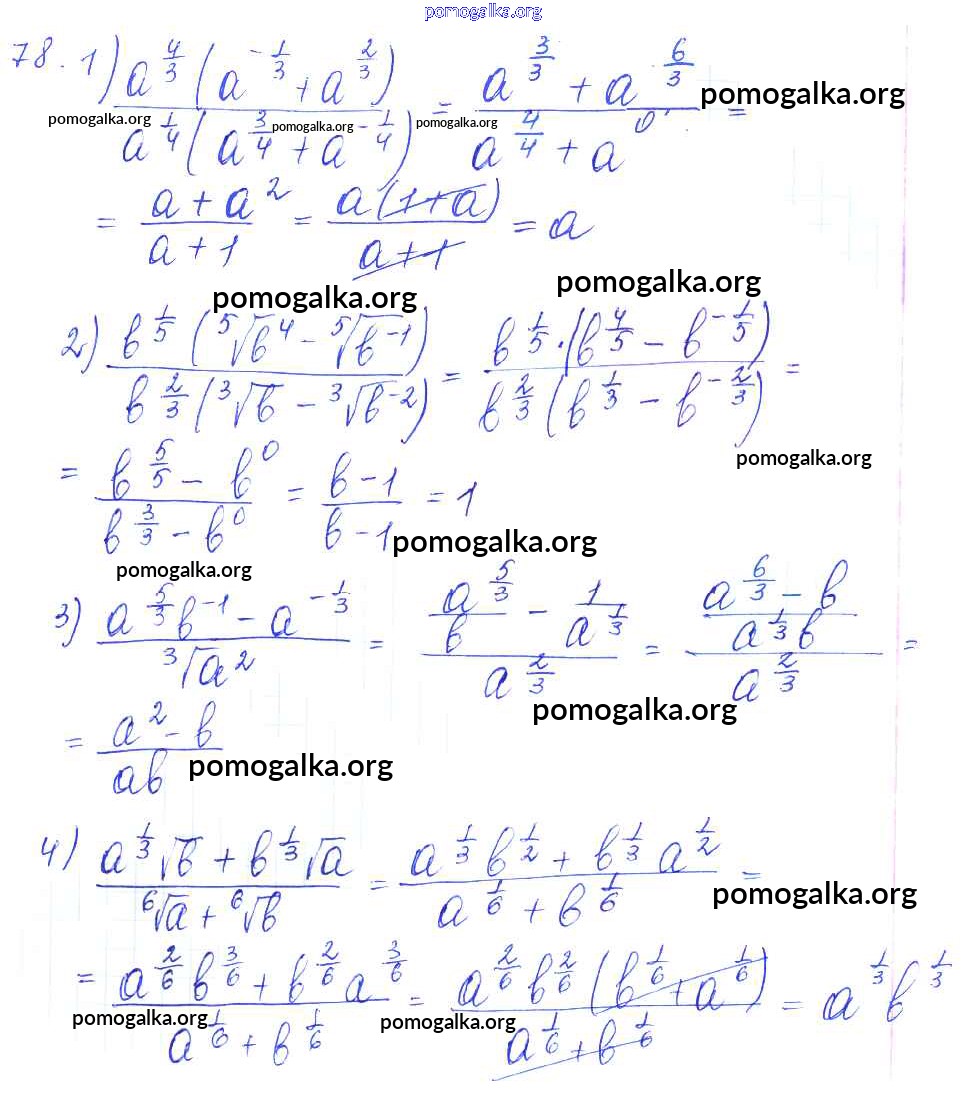 pomogalka.org
78. 1) a^{4/3}(a^{-1/3} + a^{2/3}) / a^{1/4}(a^{3/4} + a^{-1/4}) = (a^{3/3} + a^{6/3}) / (a^{4/4} + a^0) =
pomogalka.org
pomogalka.org pomogalka.org pomogalka.org
= (a + a^2) / (a + 1) = a(1 + a) / (a + 1) = a
pomogalka.org
pomogalka.org
2) b^{1/5}(⁵√b^4 - ⁵√b^{-1}) / b^{2/3}(³√b - ³√b^{-2}) = b^{1/5}·(b^{4/5} - b^{-1/5}) / b^{2/3}(b^{1/3} - b^{-2/3}) =
pomogalka.org
= (b^{5/5} - b^0) / (b^{3/3} - b^0) = (b - 1) / (b - 1) = 1
pomogalka.org
pomogalka.org
3) (a^{5/3}b^{-1} - a^{-1/3}) / ³√a^2 = (a^{5/3}/b - 1/a^{1/3}) / a^{2/3} = ((a^{6/3} - b) / a^{1/3}b) / a^{2/3} =
pomogalka.org
= (a^2 - b) / ab
pomogalka.org
4) (a^{1/3}√b + b^{1/3}√a) / (⁶√a + ⁶√b) = (a^{1/3}b^{1/2} + b^{1/3}a^{1/2}) / (a^{1/6} + b^{1/6}) =
pomogalka.org
= (a^{2/6}b^{3/6} + b^{2/6}a^{3/6}) / (a^{1/6} + b^{1/6}) = a^{2/6}b^{2/6}(b^{1/6} + a^{1/6}) / (a^{1/6} + b^{1/6}) = a^{1/3}b^{1/3}
pomogalka.org pomogalka.org